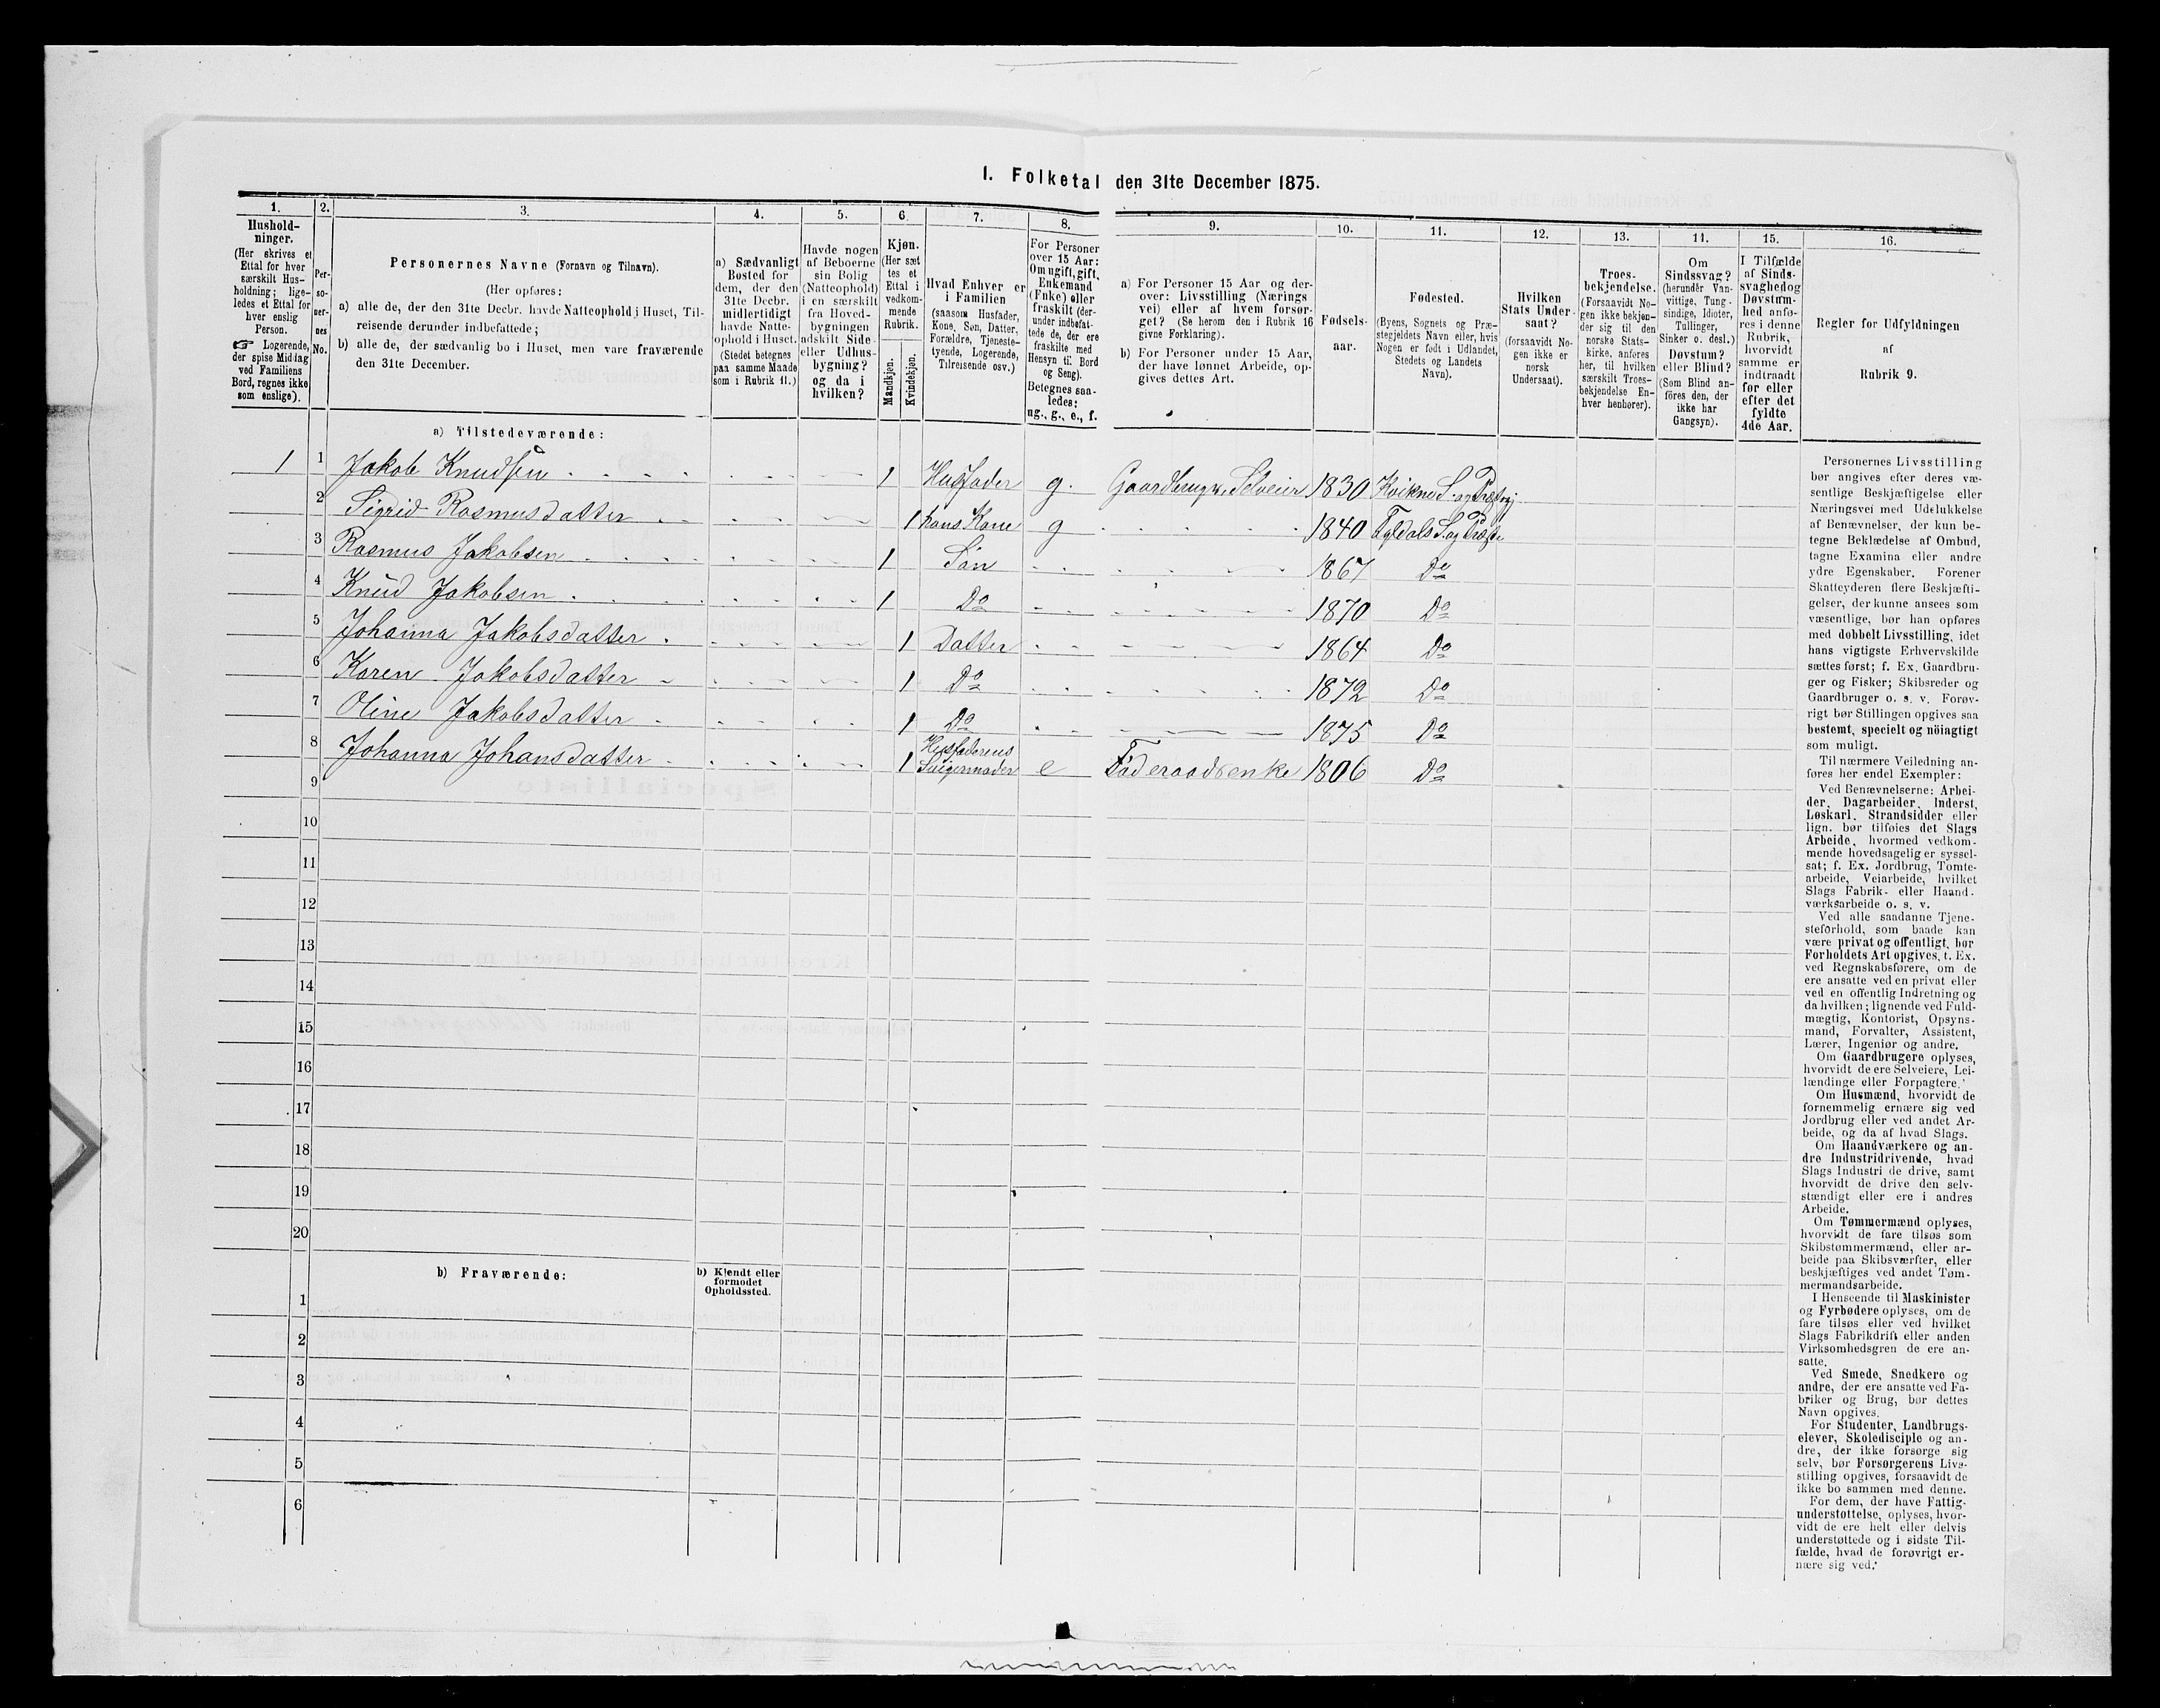 I. Folketal den 31te December 1875.
1.
Hushold-
ninger.
(Her skrives et
Ettal for hver
særskilt Hus-
holdning; lige-
ledes et Ettal for
hver enslig
Person.
☞ Logerende,
der spise Middag
ved Familiens
Bord, regnes ikke
som enslige).
2.
Per-
so-
ner-
nes
No.
3.
Personernes Navne (Fornavn og Tilnavn).
(Her opføres:
a) alle de, der den 31te Decbr. havde Natteophold i Huset, Til-
reisende derunder indbefattede;
b) alle de, der sædvanlig bo i Huset, men vare fraværende
den 31te December.
4.
a) Sædvanligt
Bosted for
dem, der den
31te Decbr.
midlertidigt
havde Natte-
ophold i Huset.
(Stedet betegnes
paa samme Maade
som i Rubrik 11.)
5.
Havde nogen
af Beboerne
sin Bolig
(Natteophold)
i en særskilt
fra Hoved-
bygningen
adskilt Side-
eller Udhus-
bygning?
og da i
hvilken?
6.
Kjøn.
(Her sæt
tes et
Ettal i
vedkom-
mende
Rubrik.
Mandkjøn.
Kvindekjøn.
7.
Hvad Enhver er
i Familien
(saasom Husfader,
Kone, Søn, Datter,
Forældre, Tjeneste-
tyende, Logerende,
Tilreisende osv.)
8.
For Personer
over 15 Aar:
Om ugift, gift,
Enkemand
(Enke) eller
fraskilt (der-
under indbefat-
tede de, der ere
fraskilte med
Hensyn til Bord
og Seng).
Betegnes saa-
ledes:
ug., g., e., f.
9.
a) For Personer 15 Aar og der-
over: Livsstilling (Nærings
vei) eller af hvem forsør-
get? (Se herom den i Rubrik 16
givne Forklaring).
b) For Personer under 15 Aar,
der have lønnet Arbeide, op-
gives dettes Art.
10.
Fødsels-
aar.
11.
Fødested.
(Byens, Sognets og Præ-
stegjeldets Navn eller, hvis
Nogen er født i Udlandet,
Stedets og Landets
Navn).
12.
Hvilken
Stats Under-
saat?
(forsaavidt No-
gen ikke er
norsk
Undersaat).
13.
Troes-
bekjendelse.
(Forsaavidt No-
gen ikke bekjen-
der sig til den
norske Stats-
kirke, anføres
her, til hvilken
særskilt Troes-
bekjendelse En-
hver henhører).
14.
Om
Sindssvag?
(herunder Van-
vittige, Tung-
sindige, Idioter,
Tullinger,
Sinker o. desl.)
Døvstum?
eller Blind?
(Som Blind an-
føres den, der
ikke har
Gangsyn).
15.
I Tilfælde
af Sinds-
svaghed og
Døvstum-
hed anfø-
res i denne
Rubrik,
hvorvidt
samme er
indtraadt
før eller
efter det
fyldte
4de Aar.
16.
Regler for Udfyldningen
af
Rubrik 9.
a) Tilstedeværende:
1 1 Jakob Knudsen 1 Husfader g. Gaardbruger, Selveier 1830 Kvikne S. og Præstegj
2 Sigrid Rasmusdatter 1 hans Kone g 1840 Tyldals S. og Præste
3 Rasmus Jakobsen 1 Søn 1867 Do
4 Knud Jakobsen 1 Do 1870 Do
5 Johanna Jakobsdatter 1 Datter 1864 Do
6 Karen Jakobsdatter 1 Do 1872 Do
7 Oline Jakobsdatter 1 Do 1875 Do
8 Johanna Johansdatter 1 Husfaderens Svigermoder e Føderaadsenke 1806 Do
9
10
11
12
13
14
15
16
17
18
19
20
b) Fraværende:
b) Kjendt eller
formodet
Opholdssted.
1
2
3
4
5
6
Personernes Livsstilling
bør angives efter deres væ-
sentlige Beskjæftigelse eller
Næringsvei med Udelukkelse
af Benævnelser, der kun be-
tegne Beklædelse af Ombud,
tagne Examina eller andre
ydre Egenskaber. Forener
Skatteyderen flere Beskjæfti-
gelser, der kunne ansees som
væsentlige, bør han opføres
med dobbelt Livsstilling, idet
hans vigtigste Erhvervskilde
sættes først; f. Ex. Gaardbru-
ger og Fisker; Skibsreder og
Gaardbruger o. s. v. Forøv-
rigt bør Stillingen opgives saa
bestemt, specielt og nöiagtigt
som muligt.
Til nærmere Veiledning an-
føres her endel Exempler:
Ved Benævnelserne: Arbei-
der, Dagarbeider, Inderst,
Løskarl, Strandsidder eller
lign. bør tilføies det Slags
Arbeide, hvormed vedkom-
mende hovedsagelig er syssel-
sat; f. Ex. Jordbrug, Tomte-
arbeide, Veiarbeide, hvilket
Slags Fabrik- eller Haand-
værksarbeide o. s. v.
Ved alle saadanne Tjene-
steforhold, som baade kan
være privat og offentligt, bør
Forholdets Art opgives, t. Ex.
ved Regnskabsførere, om de
ere ansatte ved en privat eller
ved en offentlig Indretning og
da hvilken; lignende ved Fuld-
mægtig, Kontorist, Opsyns-
mand, Forvalter, Assistent,
Lærer, Ingeniør og andre.
Om Gaardbrugere oplyses,
hvorvidt de ere Selveiere, Lei-
lændinge eller Forpagtere.
Om Husmænd, hvorvidt de
fornemmelig ernære sig ved
Jordbrug eller ved andet Ar-
beide, og da af hvad Slags.
Om Haandværkere og an-
dre Industridrivende, hvad
Slags Industri de drive, samt
hvorvidt de drive den selv-
stændigt eller ere i andres
Arbeide.
Om Tømmermænd oplyses,
hvorvidt de fare tilsøs som
Skibstømmermænd, eller ar-
beide paa Skibsværfter, eller
beskjæftiges ved andet Tøm-
mermandsarbeide.
I Henseende til Maskinister
og Fyrbødere oplyses, om de
fare tilsøs eller ved hvilket
Slags Fabrikdrift eller anden
Virksomhedsgren de ere an-
satte.
Ved Smede, Snedkere og
andre, der ere ansatte ved Fa-
briker og Brug, bør dettes
Navn opgives.
For Studenter, Landbrugs-
elever, Skoledisciple og an-
dre, der ikke forsørge sig
selv, bør Forsørgerens Livs-
stilling opgives, forsaavidt de
ikke bo sammen med denne.
For dem, der have Fattig-
understøttelse, oplyses, hvor-
vidt de ere helt eller delvis
understøttede og i sidste Til-
fælde, hvad de forøvrigt er-
nære sig ved.